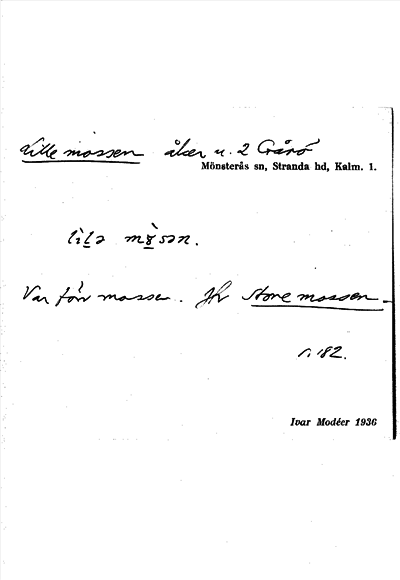 Lille mossen åker u. 2 Gåsö
Mönsterås sn, Stranda hd, Kalm. l.
lìlə mòsən.
Var förr mosse. Jfr Store mossen
s. 182.
Ivar Modéer 1936